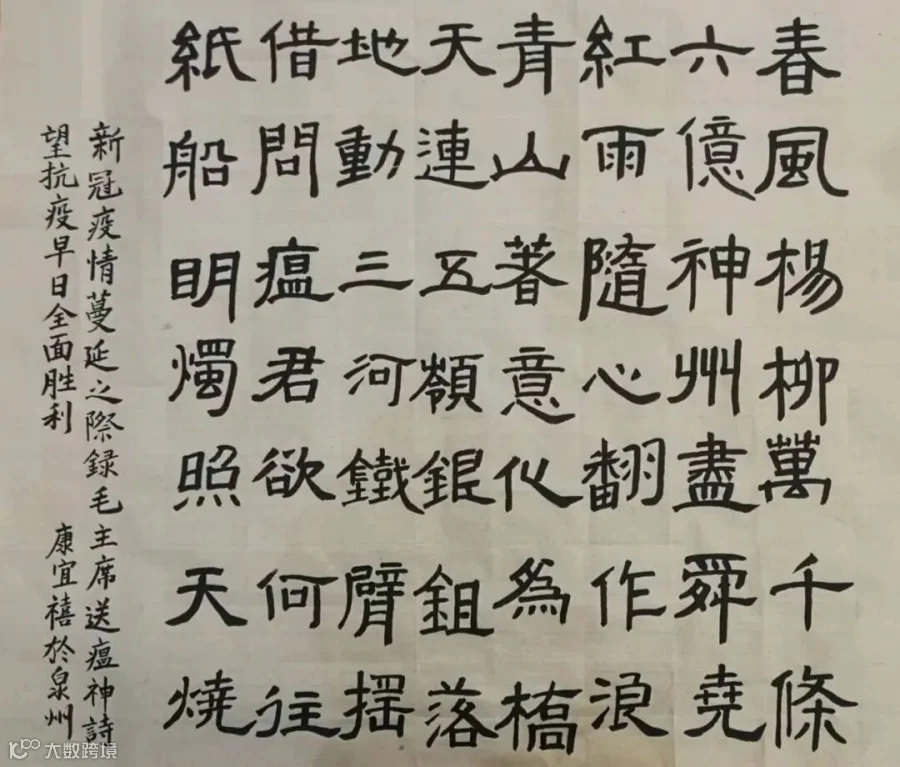 春風楊柳萬千條
六億神州盡舜堯
紅雨隨心翻作浪
青山著意化為橋
天連五嶺銀鉏落
地動三河鐵臂摇
借問瘟君欲何往
紙船明燭照天燒
新冠疫情蔓延之際録毛主席送瘟神詩
望抗疫早日全面胜利 康宜禧於泉州
大数跨境